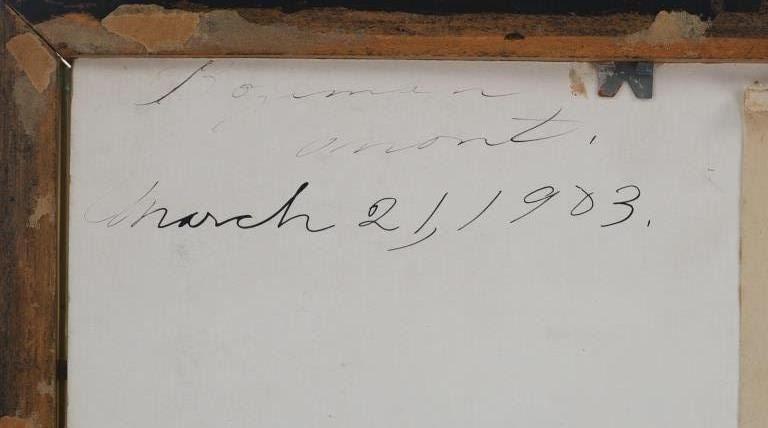 Bozeman
Mont.
March 21, 1903.